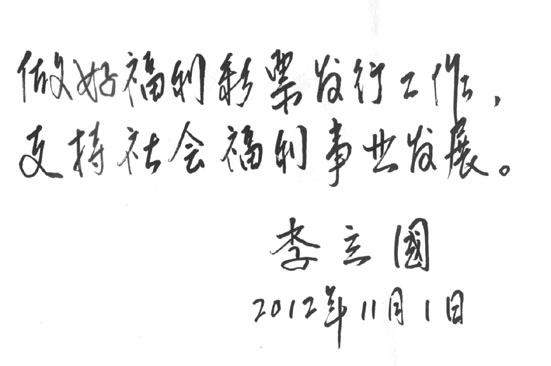 做好福利彩票发行工作，
支持社会福利事业发展。
李立國
2012年11月1日